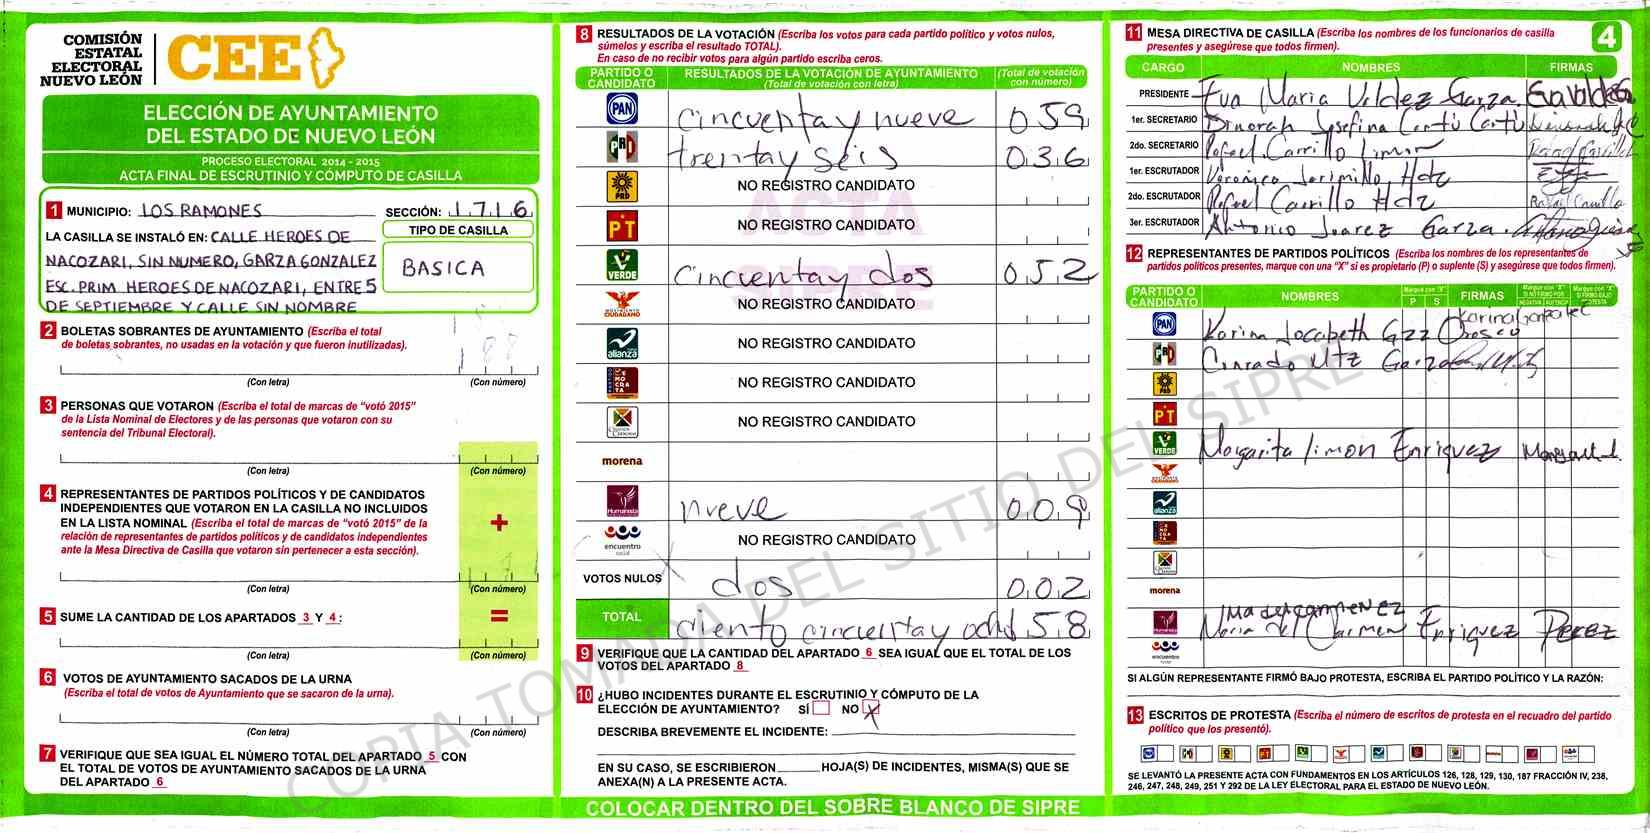 COMISIÓN
ESTATAL
ELECTORAL
NUEVO LEÓN
CEE
ELECCIÓN DE AYUNTAMIENTO
DEL ESTADO DE NUEVO LEÓN
PROCESO ELECTORAL 2014 - 2015
ACTA FINAL DE ESCRUTINIO Y CÓMPUTO DE CASILLA
1 MUNICIPIO: LOS RAMONES SECCIÓN: 1716
LA CASILLA SE INSTALÓ EN: CALLE HEROES DE
NACOZARI, SIN NUMERO, GARZA GONZALEZ
ESC. PRIM HEROES DE NACOZARI, ENTRE 5
DE SEPTIEMBRE Y CALLE SIN NOMBRE
TIPO DE CASILLA
BASICA
2 BOLETAS SOBRANTES DE AYUNTAMIENTO (Escriba el total
de boletas sobrantes, no usadas en la votación y que fueron inutilizadas).
(Con letra) (Con número)
3 PERSONAS QUE VOTARON (Escriba el total de marcas de "votó 2015"
de la Lista Nominal de Electores y de las personas que votaron con su
sentencia del Tribunal Electoral).
(Con letra) (Con número)
4 REPRESENTANTES DE PARTIDOS POLÍTICOS Y DE CANDIDATOS
INDEPENDIENTES QUE VOTARON EN LA CASILLA NO INCLUIDOS
EN LA LISTA NOMINAL (Escriba el total de marcas de "votó 2015" de la
relación de representantes de partidos políticos y de candidatos independientes
ante la Mesa Directiva de Casilla que votaron sin pertenecer a esta sección).
+
(Con letra) (Con número)
5 SUME LA CANTIDAD DE LOS APARTADOS 3 Y 4:
=
(Con letra) (Con número)
6 VOTOS DE AYUNTAMIENTO SACADOS DE LA URNA
(Escriba el total de votos de Ayuntamiento que se sacaron de la urna).
(Con letra) (Con número)
7 VERIFIQUE QUE SEA IGUAL EL NÚMERO TOTAL DEL APARTADO 5 CON
EL TOTAL DE VOTOS DE AYUNTAMIENTO SACADOS DE LA URNA
DEL APARTADO 6
8 RESULTADOS DE LA VOTACIÓN (Escriba los votos para cada partido político y votos nulos,
súmelos y escriba el resultado TOTAL).
En caso de no recibir votos para algún partido escriba ceros.
PARTIDO O
CANDIDATO
RESULTADOS DE LA VOTACIÓN DE AYUNTAMIENTO
(Total de votación con letra)
(Total de votación
con número)
PAN cincuenta y nueve 059
PRI trenta y seis 036
PRD NO REGISTRO CANDIDATO
PT NO REGISTRO CANDIDATO
VERDE cincuenta y dos 052
MOVIMIENTO CIUDADANO NO REGISTRO CANDIDATO
alianza NO REGISTRO CANDIDATO
DEMOCRATA NO REGISTRO CANDIDATO
NO REGISTRO CANDIDATO
morena
Humanista nueve 009
encuentro social NO REGISTRO CANDIDATO
VOTOS NULOS dos 002
TOTAL ciento cincuenta y ocho 158
ACTA
SIPRE
9 VERIFIQUE QUE LA CANTIDAD DEL APARTADO 6 SEA IGUAL QUE EL TOTAL DE LOS
VOTOS DEL APARTADO 8
10 ¿HUBO INCIDENTES DURANTE EL ESCRUTINIO Y CÓMPUTO DE LA
ELECCIÓN DE AYUNTAMIENTO? SÍ NO X
DESCRIBA BREVEMENTE EL INCIDENTE:
EN SU CASO, SE ESCRIBIERON HOJA(S) DE INCIDENTES, MISMA(S) QUE SE
ANEXA(N) A LA PRESENTE ACTA.
COLOCAR DENTRO DEL SOBRE BLANCO DE SIPRE
11 MESA DIRECTIVA DE CASILLA (Escriba los nombres de los funcionarios de casilla
presentes y asegúrese que todos firmen).
4
CARGO NOMBRES FIRMAS
PRESIDENTE Eva Maria Valdez Garza.
1er. SECRETARIO Dinorah Josefina Cantú Cantú
2do. SECRETARIO Rafael Carrillo Limon
1er. ESCRUTADOR Veronica Jarimillo Hdz
2do. ESCRUTADOR Rafael Carrillo Hdz Rafael Carrillo
3er. ESCRUTADOR Antonio Juarez Garza.
12 REPRESENTANTES DE PARTIDOS POLÍTICOS (Escriba los nombres de los representantes de
partidos políticos presentes, marque con una "X" si es propietario (P) o suplente (S) y asegúrese que todos firmen).
PARTIDO O
CANDIDATO
NOMBRES
Marque con "X"
P S
FIRMAS
Marque con "X"
SI NO FIRMÓ POR
NEGATIVA AUSENCIA
Marque con "X"
SI FIRMÓ BAJO
PROTESTA
PAN Karina Jocabeth Gzz Orosco Karina Gonzalez
PRI Conrado Mtz Garza
PRD
PT
VERDE Margarita limon Enriquez
alianza
morena
Humanista Maria del Carmen Enriquez PEREZ
encuentro social
SI ALGÚN REPRESENTANTE FIRMÓ BAJO PROTESTA, ESCRIBA EL PARTIDO POLÍTICO Y LA RAZÓN:
13 ESCRITOS DE PROTESTA (Escriba el número de escritos de protesta en el recuadro del partido
político que los presentó).
SE LEVANTÓ LA PRESENTE ACTA CON FUNDAMENTOS EN LOS ARTÍCULOS 126, 128, 129, 130, 187 FRACCIÓN IV, 238,
246, 247, 248, 249, 251 Y 292 DE LA LEY ELECTORAL PARA EL ESTADO DE NUEVO LEÓN.
COPIA TOMADA DEL SITIO DEL SIPRE